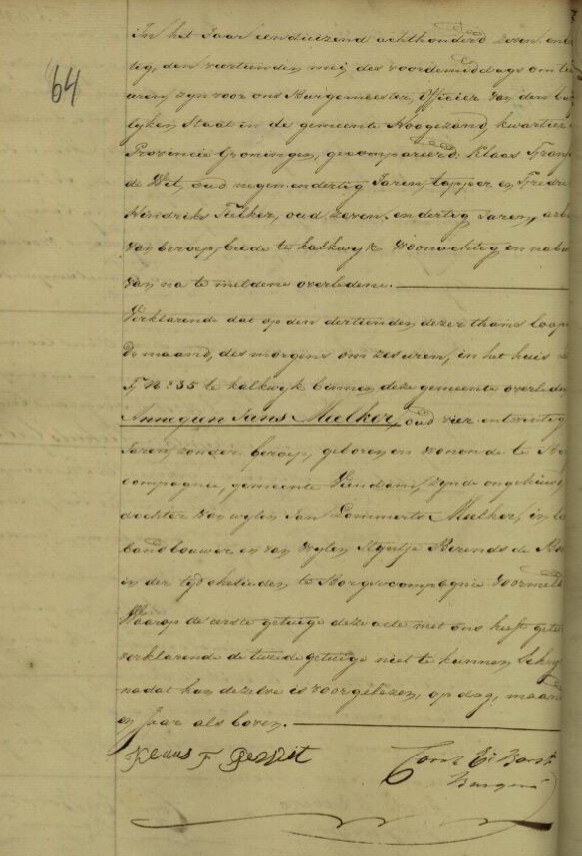 64
In het Jaar eenduizend achthonderd zeven en
tig, den veertienden mei des voormiddags om
uren, zyn voor ons Burgemeester, Officier van den bu
lyken Staat in de gemeente Hoogezand, kwartier
Provincie Groningen, gecompareerd: Klaas Frans
de Wit, oud negen en dertig Jaren, tapper en
Hendriks Fulker, oud zeven en dertig Jaren, arb
van beroep, beide te Kalkwyk woonachtig en nabu
van na te meldene overledene.
Verklarende dat op den dertienden dezer thans loop
de maand, des morgens om zes uren, in het huis
N: 35 te Kalkwyk binnen deze gemeente overled
Annegien Jans Mulker, oud vier en twintig
Jaren, zonder beroep, geboren en wonende te
compagnie, gemeente Veendam, zynde ongehuwd,
dochter van wylen Jan Lommerts Mulker, in
landbouwer en van wylen Styntje Berends de
in der tyd ehelieden te Borgercompagnie voormeld
Waarop de eerste getuige deze acte met ons heeft gete
verklarende de tweede getuige niet te kunnen
nadat hun dezelve is voorgelezen, op dag, maand
en Jaar als boven.
Klaas F de Wit
Burgem